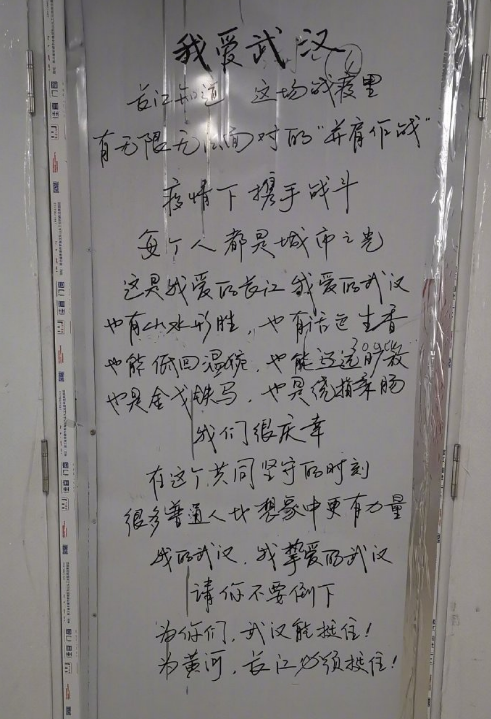 我爱武汉
长江知道 这场战疫里
有无限无法面对的“并肩作战”
疫情下携手战斗
每个人都是城市之光
这是我爱的长江 我爱的武汉
也有山水形胜，也有活色生香
也能低回温婉，也能
也是金戈铁马，也是绕指柔肠
我们很庆幸
在这个共同坚守的时刻
很多普通人比想象中更有力量
我的武汉，我挚爱的武汉
请你不要倒下
为你们，武汉能挺住！
为黄河，长江必须挺住！